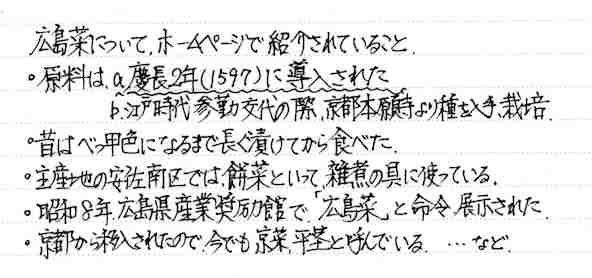 広島菜について,ホームページで紹介されていること.
・原料は,a.慶長2年(1597)に導入された
b.江戸時代参勤交代の際,京都本願寺より種を入手,栽培.
・昔はべっ甲色になるまで長く漬けてから食べた.
・主産地の安佐南区では,餅菜といって,雑煮の具に使っている.
・昭和8年,広島県産業奨励館で,「広島菜」と命令,展示された.
・京都から移入されたので,今でも京菜,平茎と呼んでいる. …など.